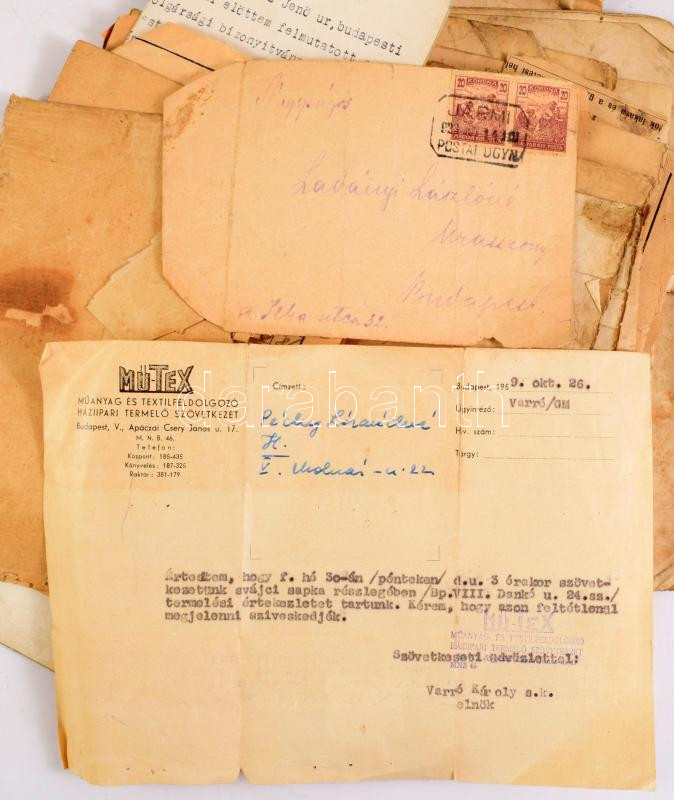 Jenő ur, budapesti
előttem felmutatott
bizonyitván
20 KORONA 20
20 KORONA 20
JÁRMI
POSTAI ÜGYN
Nagyságos
Ladányi Lászlóné
Budapest.
Ilka utca 32.
darabanth
MÜ-TEX
MŰANYAG ÉS TEXTILFELDOLGOZÓ
HÁZIIPARI TERMELŐ SZÖVETKEZET
Budapest, V., Apáczai Csery János u. 17.
M. N. B. 46.
Telefon:
Központ: 185-435
Könyvelés: 187-325
Raktár: 381-179
Címzett:
H.
V. Molnár-u. 22
Budapest, 195 9. okt. 26.
Ügyintéző: Varró/GM
Hiv. szám:
Tárgy:
Értesitem, hogy f. hó 30-án /pénteken/ d.u. 3 órakor szövet-
kezetünk svájci sapka részlegében /Bp.VIII. Dankó u. 24.sz./
termelési értekezletet tartunk. Kérem, hogy azon feltétlenül
megjelenni sziveskedjék.
MÜ-TEX
MŰANYAG- ÉS TEXTILFELDOLGOZÓ
HÁZIIPARI TERMELŐ SZÖVETKEZET
Szövetkezeti üdvözlettel:
Varró Károly s.k.
elnök